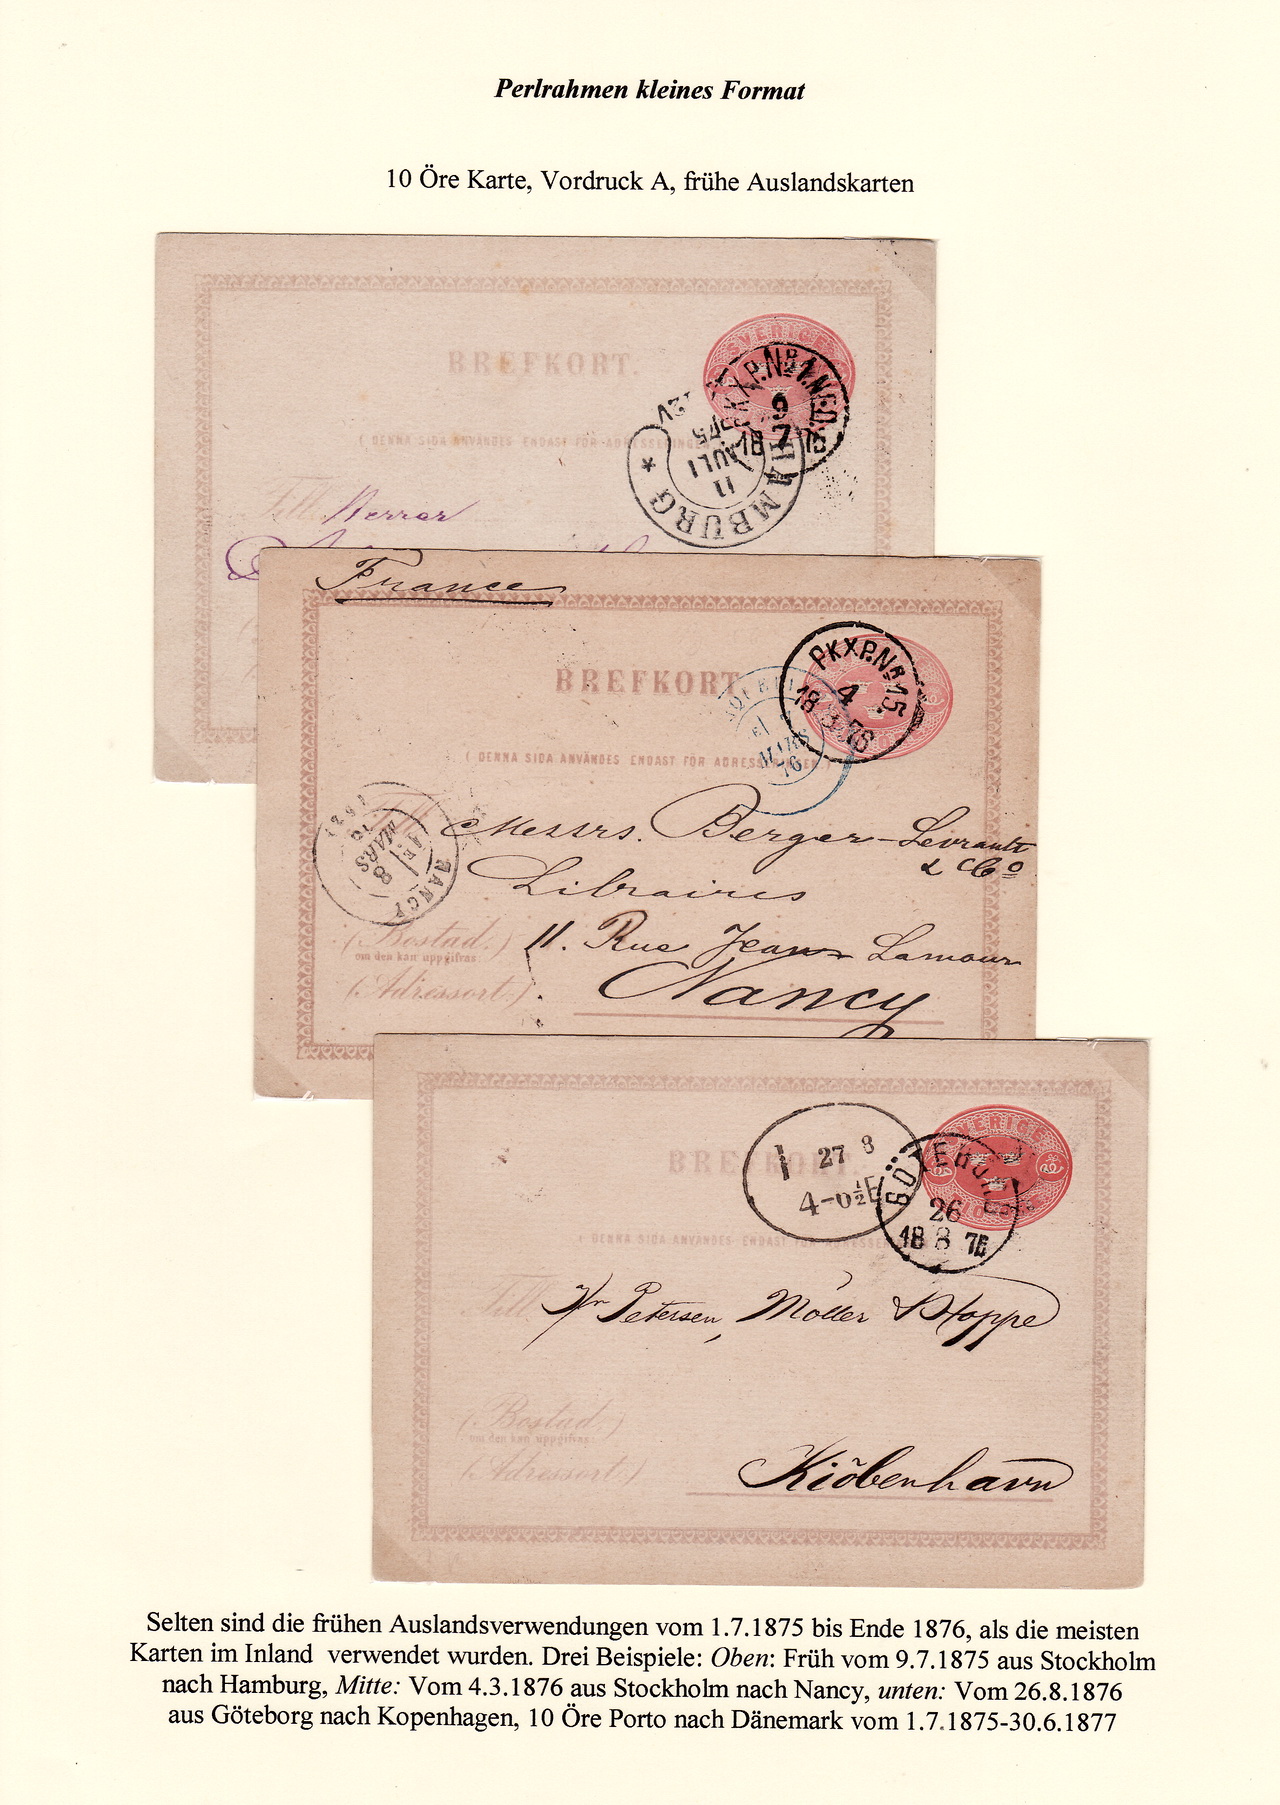 Perlrahmen kleines Format
10 Öre Karte, Vordruck A, frühe Auslandskarten
SVERIGE
BREFKORT.
PKXP.No1.N.
9
7
( DENNA SIDA ANVÄNDES ENDAST FÖR ADRESSERINGEN
HAMBURG
11
JULI
75
12V
Till Herrar
France
BREFKORT
PKXP.No15
4
18 3 76
MARS
76
( DENNA SIDA ANVÄNDES ENDAST FÖR ADRESSERINGEN.)
NANCY
8
MARS
76
Till Messrs. Berger-Levrault
& Co
Libraires
(Bostad.) 11. Rue Jean Lamour
om den kan uppgifvas:
(Adressort:) Nancy
SVERIGE
BREFKORT.
1 27 8
4-0½E
GÖTEBORG
26
18 8 75
( DENNA SIDA ANVÄNDES ENDAST FÖR ADRESSERINGEN
Till Hrn Petersen, Möller & Hoppe
(Bostad.)
om den kan uppgifvas:
(Adressort:) Kiöbenhavn
Selten sind die frühen Auslandsverwendungen vom 1.7.1875 bis Ende 1876, als die meisten
Karten im Inland verwendet wurden. Drei Beispiele: Oben: Früh vom 9.7.1875 aus Stockholm
nach Hamburg, Mitte: Vom 4.3.1876 aus Stockholm nach Nancy, unten: Vom 26.8.1876
aus Göteborg nach Kopenhagen, 10 Öre Porto nach Dänemark vom 1.7.1875-30.6.1877